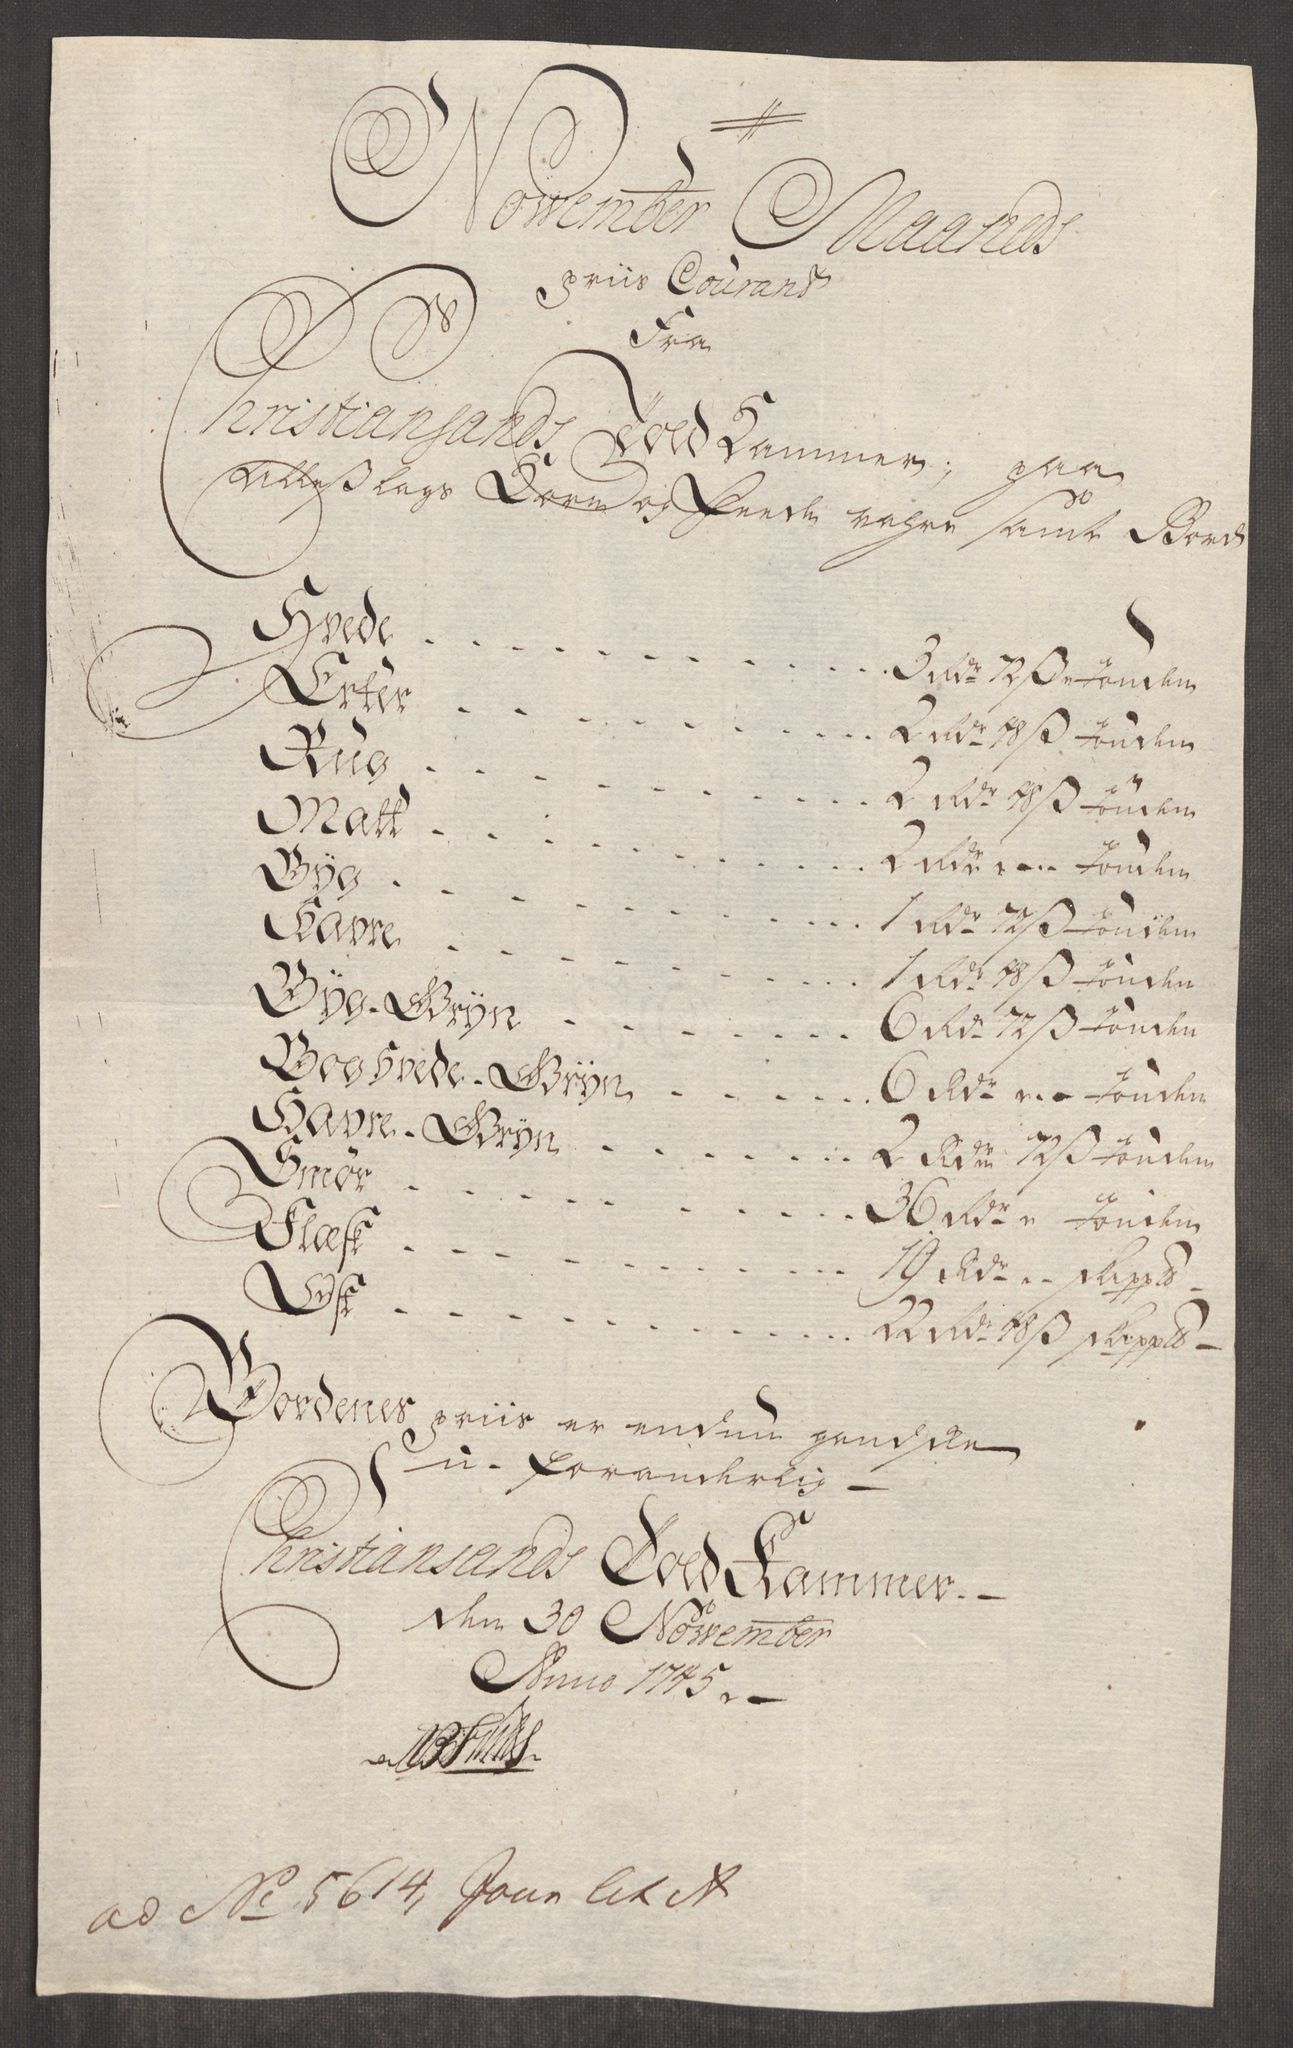 November Maaneds
priis Courant
Fra
Christiansands Told Kammer; paa
alleslags Korn og Feede vahre samt Bord
Hvede . . . . . . . . . . . 3 Rdr 72 ß Tønden
Erter . . . . . . . . . . . 2 Rdr 48 ß Tønden
Rug . . . . . . . . . . . 2 Rdr 48 ß Tønden
Malt . . . . . . . . . . . 2 Rdr " - - Tønden
Byg . . . . . . . . . . . 1 Rdr 72 ß Tønden
Havre . . . . . . . . . . 1 Rdr 48 ß Tønden
Byg-Gryn . . . . . . . 6 Rdr 72 ß Tønden
Boghvede-Gryn . . . . . 6 Rdr " - - Tønden
Havre-Gryn . . . . . . . 2 Rdr 72 ß Tønden
Smør . . . . . . . . . . 36 Rdr " Tønden
Flæsk . . . . . . . . . . 19 Rdr " - Skippd -
Lysk . . . . . . . . . . 22 Rdr 48 ß Skippd -
Bordenes priis er endnu gandske
u-foranderlig -
Christiansands Told Kammer. -
den 30 November
Anno 1745. -
ad No 5614, Jour lit A